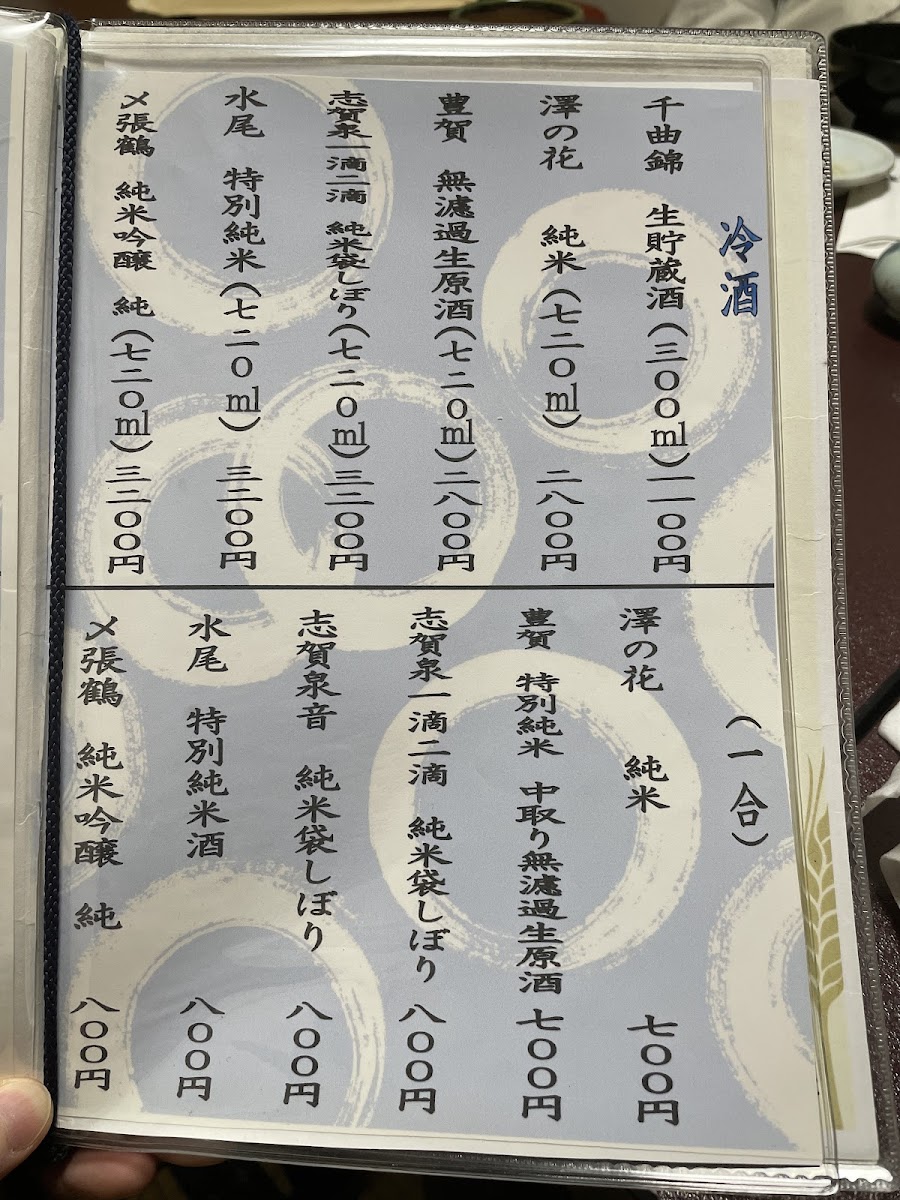 冷酒
千曲錦 生貯蔵酒(三〇〇ml)一一〇〇円
澤の花 純米(七二〇ml) 二八〇〇円
豊賀 無濾過生原酒(七二〇ml)二八〇〇円
志賀泉一滴二滴 純米袋しぼり(七二〇ml)三二〇〇円
水尾 特別純米(七二〇ml) 三二〇〇円
〆張鶴 純米吟醸 純(七二〇ml)三二〇〇円
(一合)
澤の花 純米 七〇〇円
豊賀 特別純米 中取り無濾過生原酒 七〇〇円
志賀泉一滴二滴 純米袋しぼり 八〇〇円
志賀泉音 純米袋しぼり 八〇〇円
水尾 特別純米酒 八〇〇円
〆張鶴 純米吟醸 純 八〇〇円